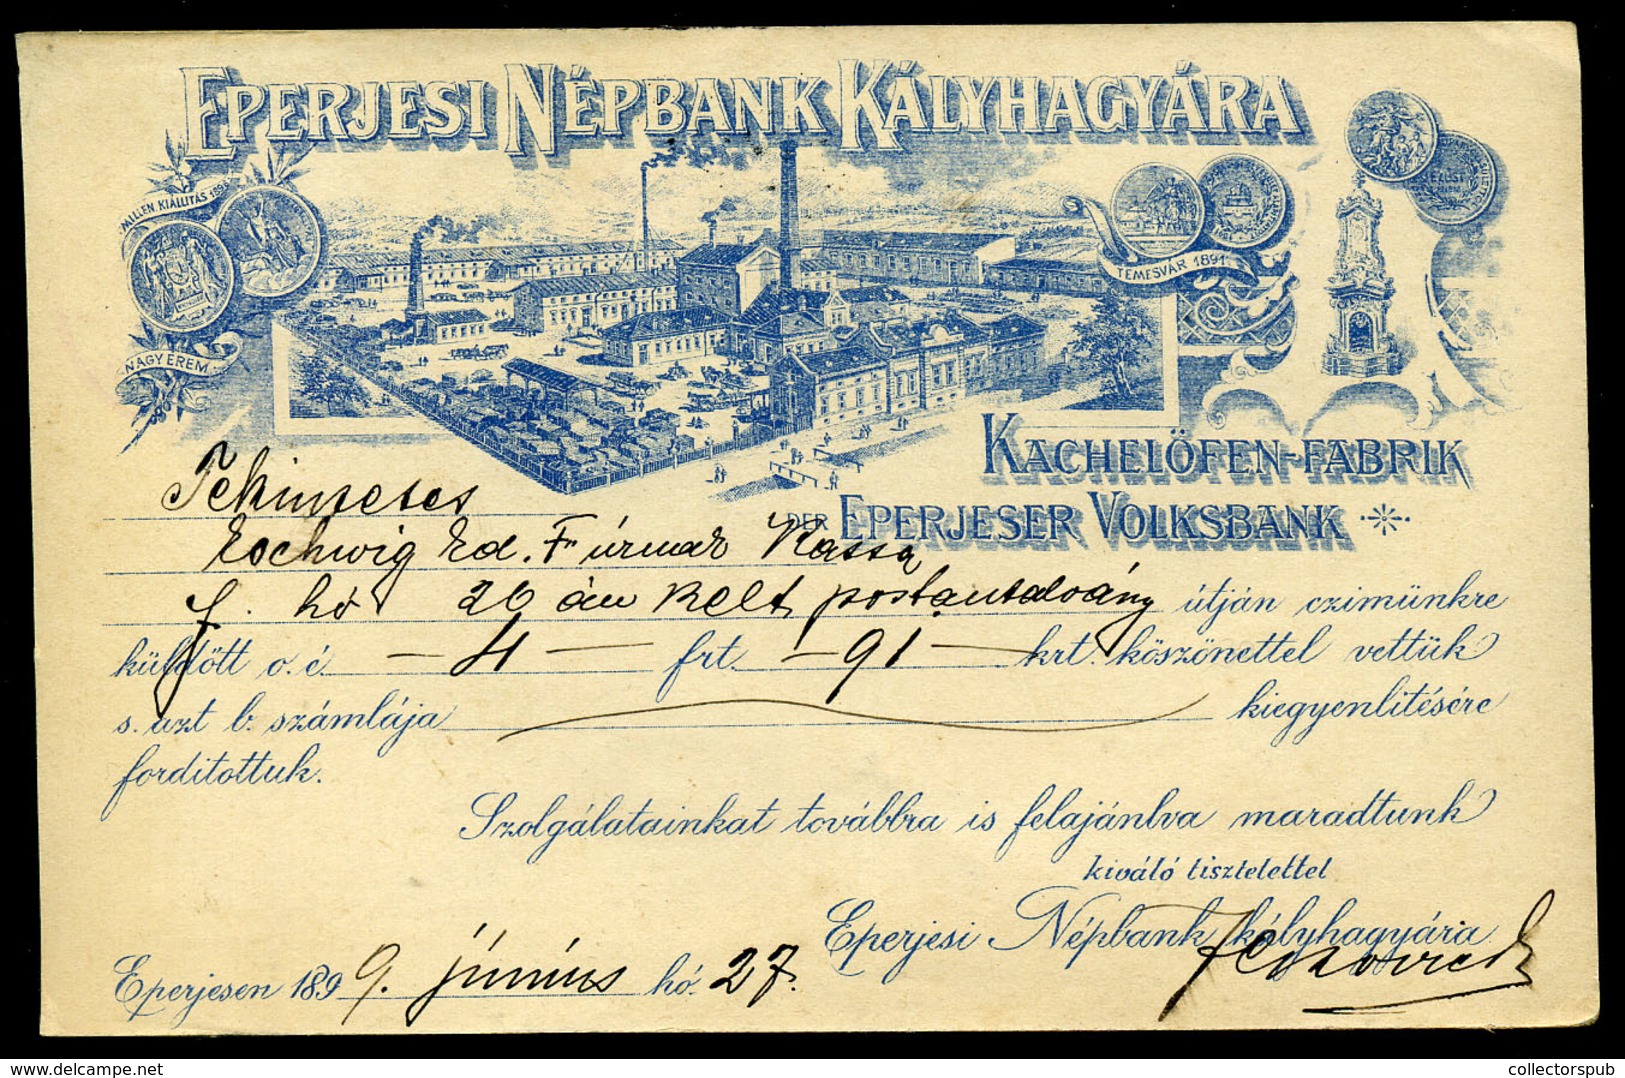 EPERJESI NÉPBANK KÁLYHAGYÁRA
MILLEN. KIÁLLITÁS 1896
NAGY ÉREM
TEMESVÁR 1891
KACHELÖFEN-FABRIK
DER EPERJESER VOLKSBANK
Tekintetes
Eschwig Ed. Fr úrnak Kassa
f. hó 26 án kelt postautalvány útján czimünkre
küldött o. é. 4 frt. 91 krt. köszönettel vettük
s. azt b. számlája kiegyenlitésére
forditottuk.
Szolgálatainkat továbbra is felajánlva maradtunk
kiváló tisztelettel
Eperjesi Népbank kályhagyára
Eperjesen 1899. június hó 27.
collectorspub